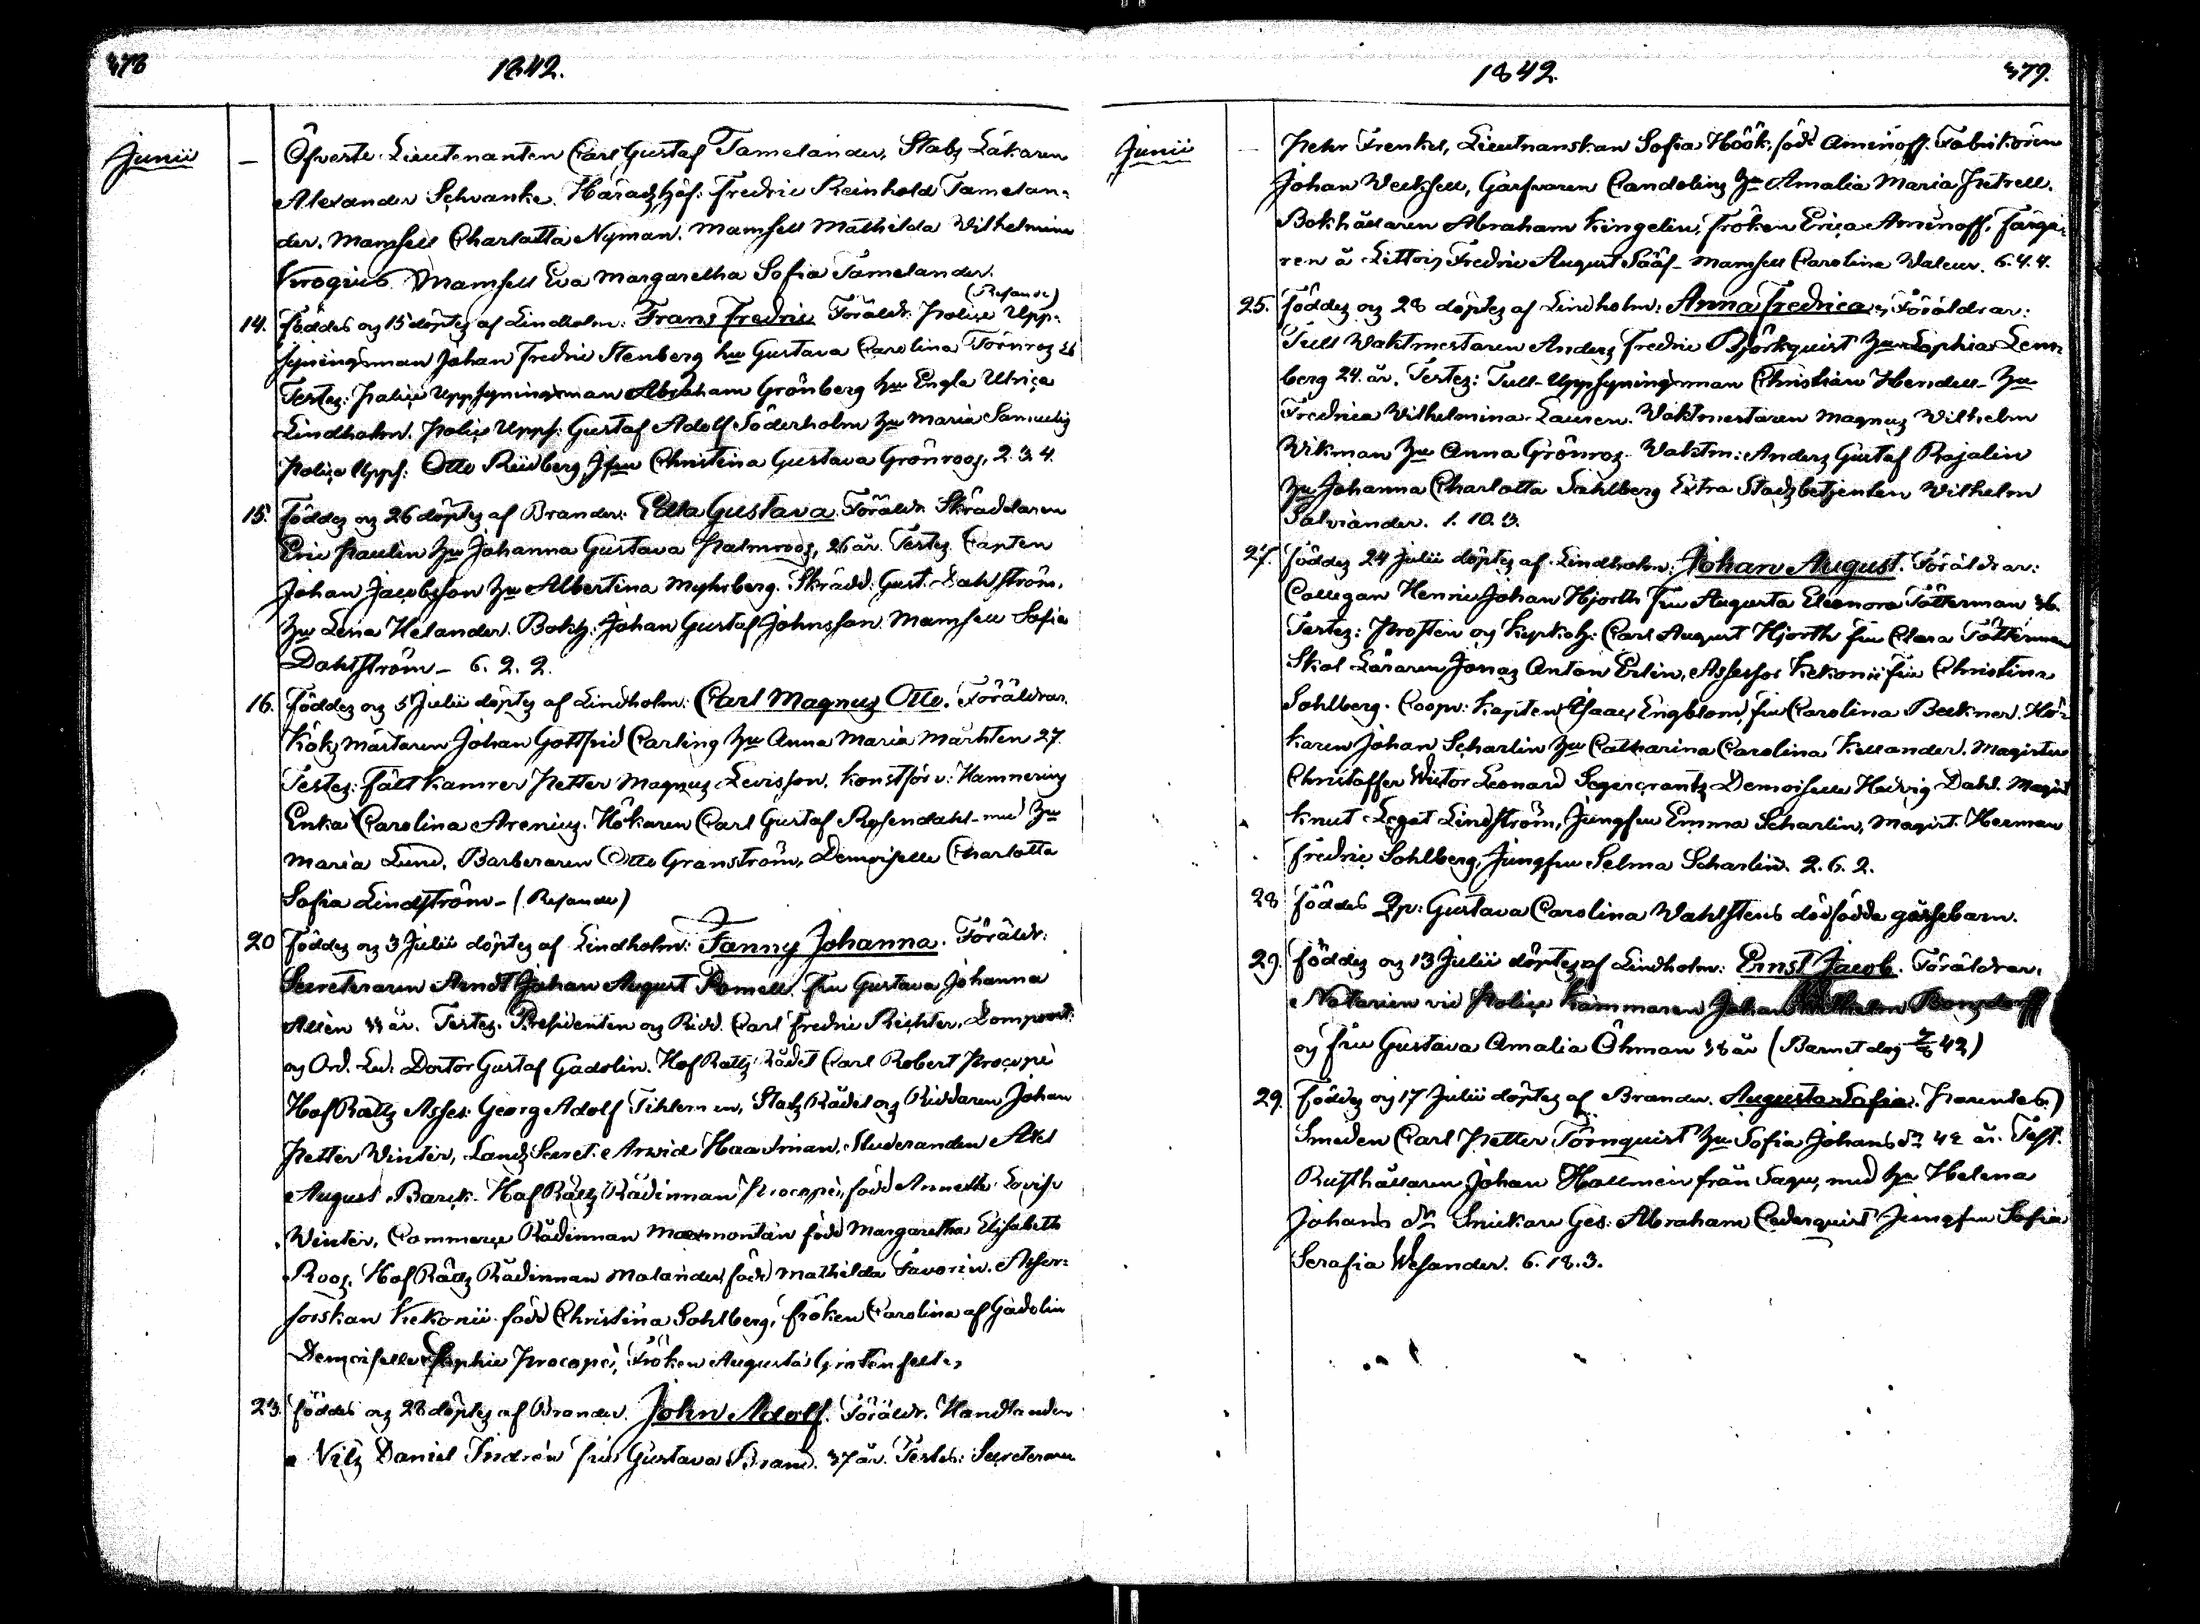 378
1842.
Junii
— Öfverste Lieutenanten Carl Gustaf Tamelander, Stabs Läkaren
Alexander Schvanke. Häradshöf: Fredric Reinhold Tamelan=
der. Mamsell Charlotta Nyman. Mamsell Mathilda Wilhelmina
Krogius. Mamsell Eva Margaretha Sofia Tamelander.
(Resande)
14. Föddes og 15 döptes af Lindholm: Frans Fredric Föräldr: Police Upp=
syningsman Johan Fredric Stenberg hu Gustava Carolina Törnros 26
Testes: Police Uppsyningsman Abraham Grönberg hu Engla Ulrica
Lindholm. Police Upps: Gustaf Adolf Söderholm hu Maria Samuelis
Police Upps: Otto Rüdberg Jfru Christina Gustava Grönroos. 2. 3. 4.
15. Föddes og 26 döptes af Brander: Edla Gustava. Föräldr. Skräddaren
Eric Paulin hu Johanna Gustava Palmroos, 26 år. Testes. Capten
Johan Jacobsson hu Albertina Myhrberg. Skrädd: Gust. Dahlström.
hu Lena Helander. Bokh: Johan Gustaf Johnsson. Mamsell Sofia
Dahlström — 6. 2. 2.
16. Föddes og 5 Julii döptes af Lindholm: Carl Magnus Otto. Föräldrar.
Köks mästaren Johan Gottfrid Carling hu Anna Maria Marhten 27.
Testes: Fält Kamrer Petter Magnus Levisson, Konstförv: Hammering
Enka Carolina Arenius. Hökaren Carl Gustaf Rosendahl med hu
Maria Lund. Barberaren Otto Granström, Demoiselle Charlotta
Sofia Lindström — (Resande)
20 Föddes og 3 Julii döptes af Lindholm: Fanny Johanna. Föräldr:
Secreteraren Arndt Johan August Romell. fru Gustava Johanna
Allén 33 år. Testes. Presidenten og Ridd. Carl Fredric Richter,
og Ord. Led. Doctor Gustaf Gadolin. Hof Rätts Rådet Carl Robert Procopé
Hof Rätts Asses: Georg Adolf Tihleman, Stats Rådet og Riddaren Johan
Petter Winter, Lands Secret. Arvid Haartman. Studeranden Axel
August Barck. Hof Rätts Rådinnan Procopé, född Annette Lovise
Winter, Commerce Rådinnan Maxmontan född Margaretha Elisabeth
Roos. Hof Rätts Rådinnan Molander född Mathilda Favorin. Asses=
sorskan Kekonii född Christina Sohlberg, fröken Carolina af Gadolin
Demoiselle Sophie Procopé, Fröken Augusta Grotenfelt,
23. Föddes og 28 döptes af Brander. John Adolf. Föräldr. Handlanden
Nils Daniel Indrén fru Gustava Brand. 37 år. Testes: Secreteraren
1842.
379.
Junii
— Pehr Frenkel, Lieutnanskan Sofia Höök, född Aminoff. Fabrikören
Johan Wecksell, Garfvaren Candolin hu Amalia Maria Petrell.
Bokhållaren Abraham Kingelin, Fröken Erica Aminoff, Färga=
ren å Littois Fredric August Sääf — Mamsell Carolina Waleur. 6. 4. 4.
25. Föddes og 28 döptes af Lindholm: Anna Fredrica, Föräldrar:
Tull Waktmestaren Anders Fredric Björkquist hu Sophia Lenn=
berg 24. år. Testes: Tull-Uppsyningsman Christian Hendell — hu
Fredrica Wilhelmina Lauren. Waktmestaren Magnus Wilhelm
Wikman hu Anna Grönros. Waktm: Anders Gustaf Rajalin
hu Johanna Charlotta Sahlberg Extra Stadsbetjenten Wilhelm
Salviander. 1. 10. 3.
27. Föddes 24 Julii döptes af Lindholm: Johan August. Föräldrar:
Collegan Henric Johan Hjorth fru Augusta Eleonora Tötterman 36.
Testes: Prosten og Kyrkoh: Carl August Hjorth fru Clara Tötterman
Skol Läraren Jonas Anton Erlin, Assessor Kekonii fru Christina
Sohlberg. Coopv: Kapten Isaac Engblom, fru Carolina Beckner. Hö=
karen Johan Scharlin hu Catharina Carolina Kellander. Magister
Christoffer Wictor Leonard Segercrantz Demoiselle Hedvig Dahl. Magist
Knut Legat Lindström, Jungfru Emma Scharlin, Magist. Herman
Fredric Sohlberg, Jungfru Selma Scharlin. 2. 6. 2.
28 Föddes Qp: Gustava Carolina Wahlstens dödfödda gossebarn.
29. Föddes og 13 Julii döptes af Lindholm: Ernst Jacob. Föräldrar.
Notarien vid Police Kammaren Johan Wilhelm Bonsdorff
og fru Gustava Amalia Öhman 38 år (Barnet dog 7/8 42)
29. Föddes og 17 Julii döptes af Brander. Augusta Sofia. Parentes)
Smeden Carl Petter Törnquist hu Sofia Johans dr 42 år. Test.
Rusthållaren Johan Hallmein från Sagu, med hu Helena
Johans dr Snickare Ges: Abraham Cederquist Jungfru Sofia
Serafia Wesander. 6. 18. 3.